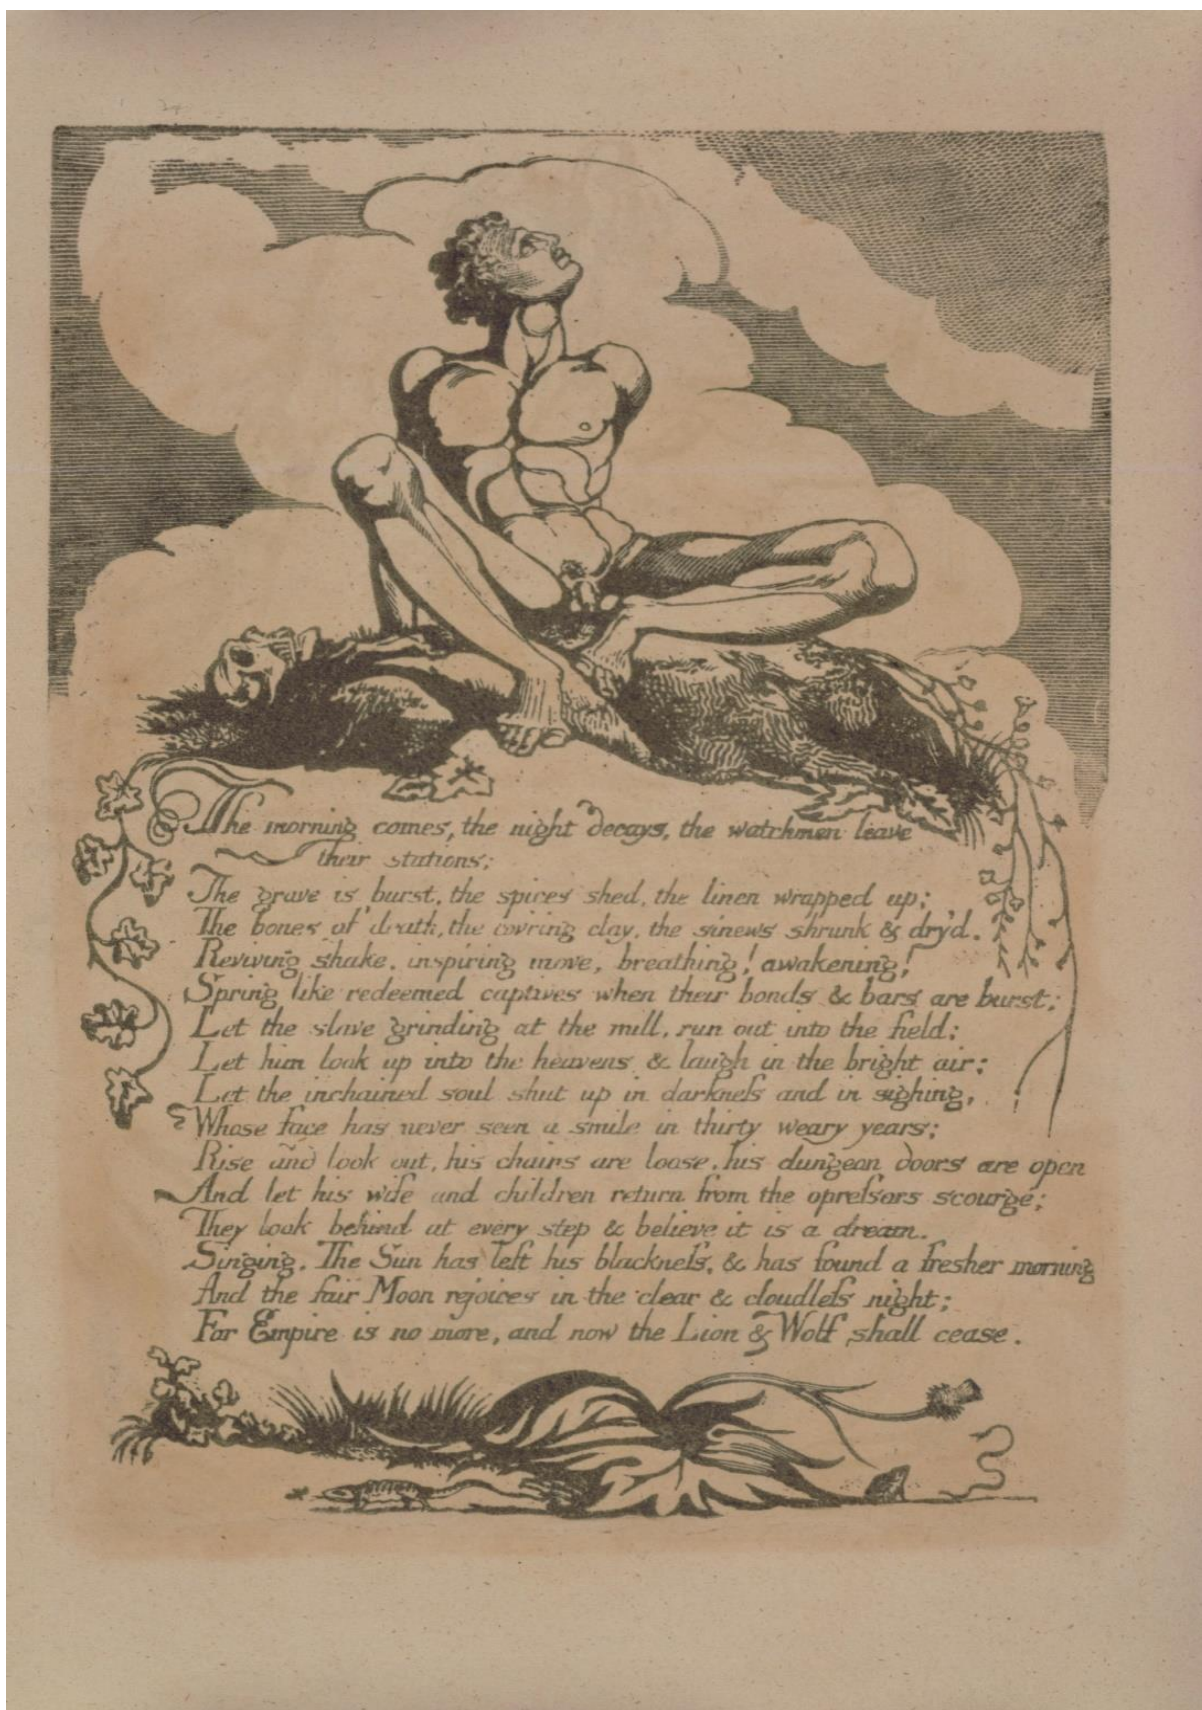 The morning comes, the night decays, the watchmen leave
their stations;
The grave is burst, the spices shed, the linen wrapped up;
The bones of death, the cov'ring clay, the sinews shrunk & dry'd.
Reviving shake, inspiring move, breathing! awakening!
Spring like redeemed captives when their bonds & bars are burst;
Let the slave grinding at the mill, run out into the field;
Let him look up into the heavens & laugh in the bright air;
Let the inchained soul shut up in darkneſs and in sighing,
Whose face has never seen a smile in thirty weary years;
Rise and look out, his chains are loose, his dungeon doors are open
And let his wife and children return from the opreſsors scourge;
They look behind at every step & believe it is a dream.
Singing. The Sun has left his blackneſs, & has found a fresher morning
And the fair Moon rejoices in the clear & cloudleſs night;
For Empire is no more, and now the Lion & Wolf shall cease.